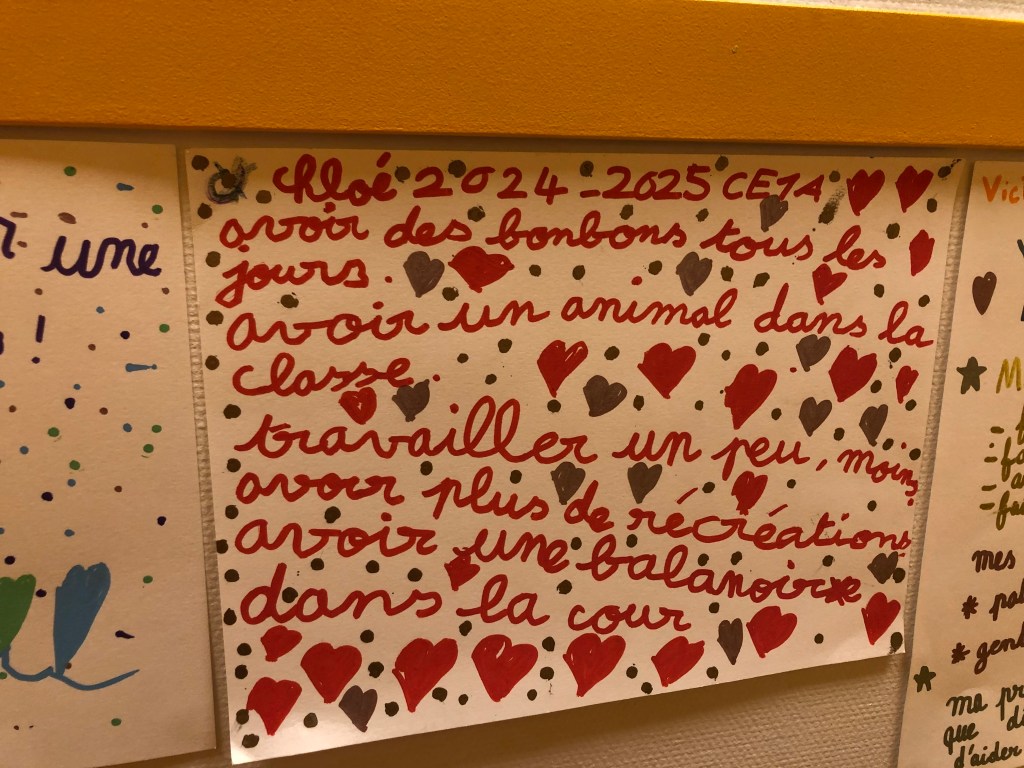 une
!
Chloé 2024-2025 CE1A
avoir des bonbons tous les
jours.
avoir un animal dans la
classe.
travailler un peu, moins
avoir plus de récréations
avoir une balanoire
dans la cour
Vic
M
mes
* pal
* gent
ma pr
que di
d'aider